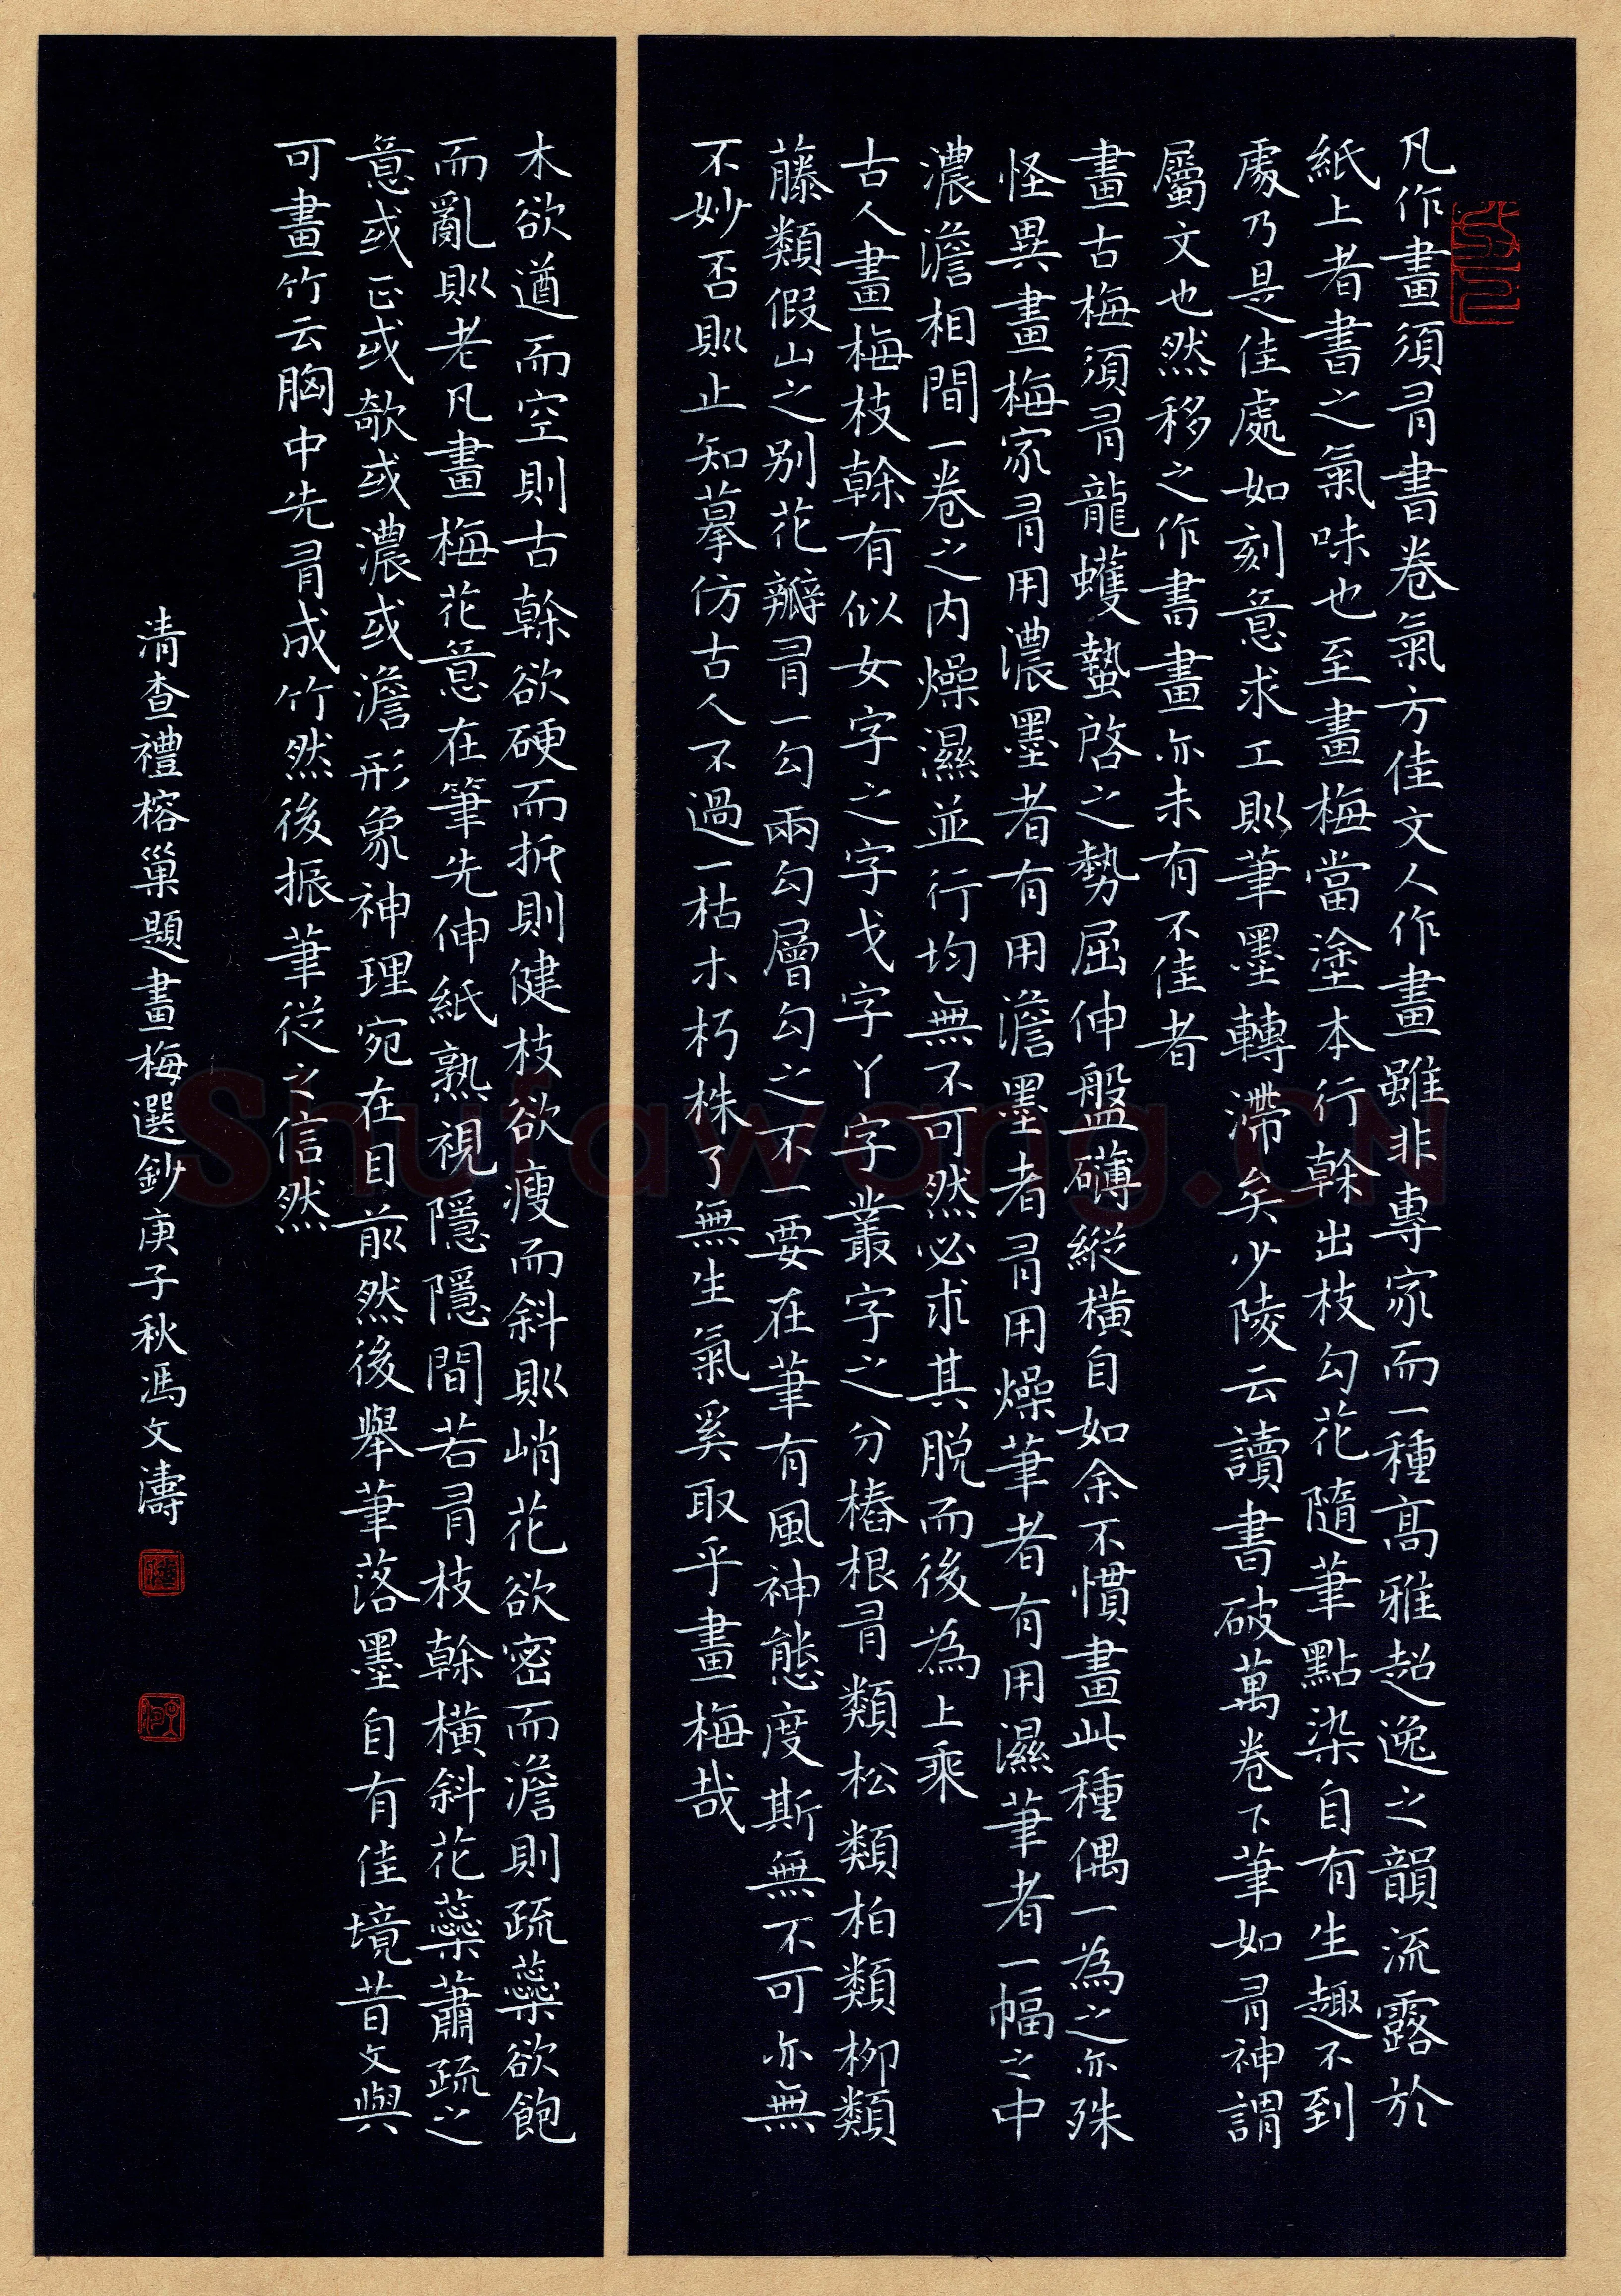 凡作畫須有書卷氣方佳文人作畫雖非專家而一種高雅超逸之韻流露於
紙上者書之氣味也至畫梅當塗本行榦出枝勾花隨筆點染自有生趣不到
處乃是佳處如刻意求工則筆墨轉滯矣少陵云讀書破萬卷下筆如有神謂
屬文也然移之作書畫亦未有不佳者
畫古梅須有龍蠖蟄啓之勢屈伸盤礴縱橫自如余不慣畫此種偶一為之亦殊
怪異畫梅家有用濃墨者有用澹墨者有用燥筆者有用濕筆者一幅之中
濃澹相間一卷之內燥濕並行均無不可然必求其脫而後為上乘
古人畫梅枝榦有似女字之字戈字丫字叢字之分樁根有類松類柏類柳類
藤類假山之別花瓣有一勾兩勾層勾之不一要在筆有風神態度斯無不可亦無
不妙否則止知摹仿古人不過一枯木朽株了無生氣奚取乎畫梅哉
木欲遒而空則古榦欲硬而折則健枝欲瘦而斜則峭花欲密而澹則疏蘂欲飽
而亂則老凡畫梅花意在筆先伸紙熟視隱隱間若有枝榦橫斜花蘂蕭疏之
意或正或欹或濃或澹形象神理宛在目前然後舉筆落墨自有佳境昔文與
可畫竹云胸中先有成竹然後振筆從之信然
清查禮榕巢題畫梅選鈔庚子秋馮文濤
Shufawang.CN